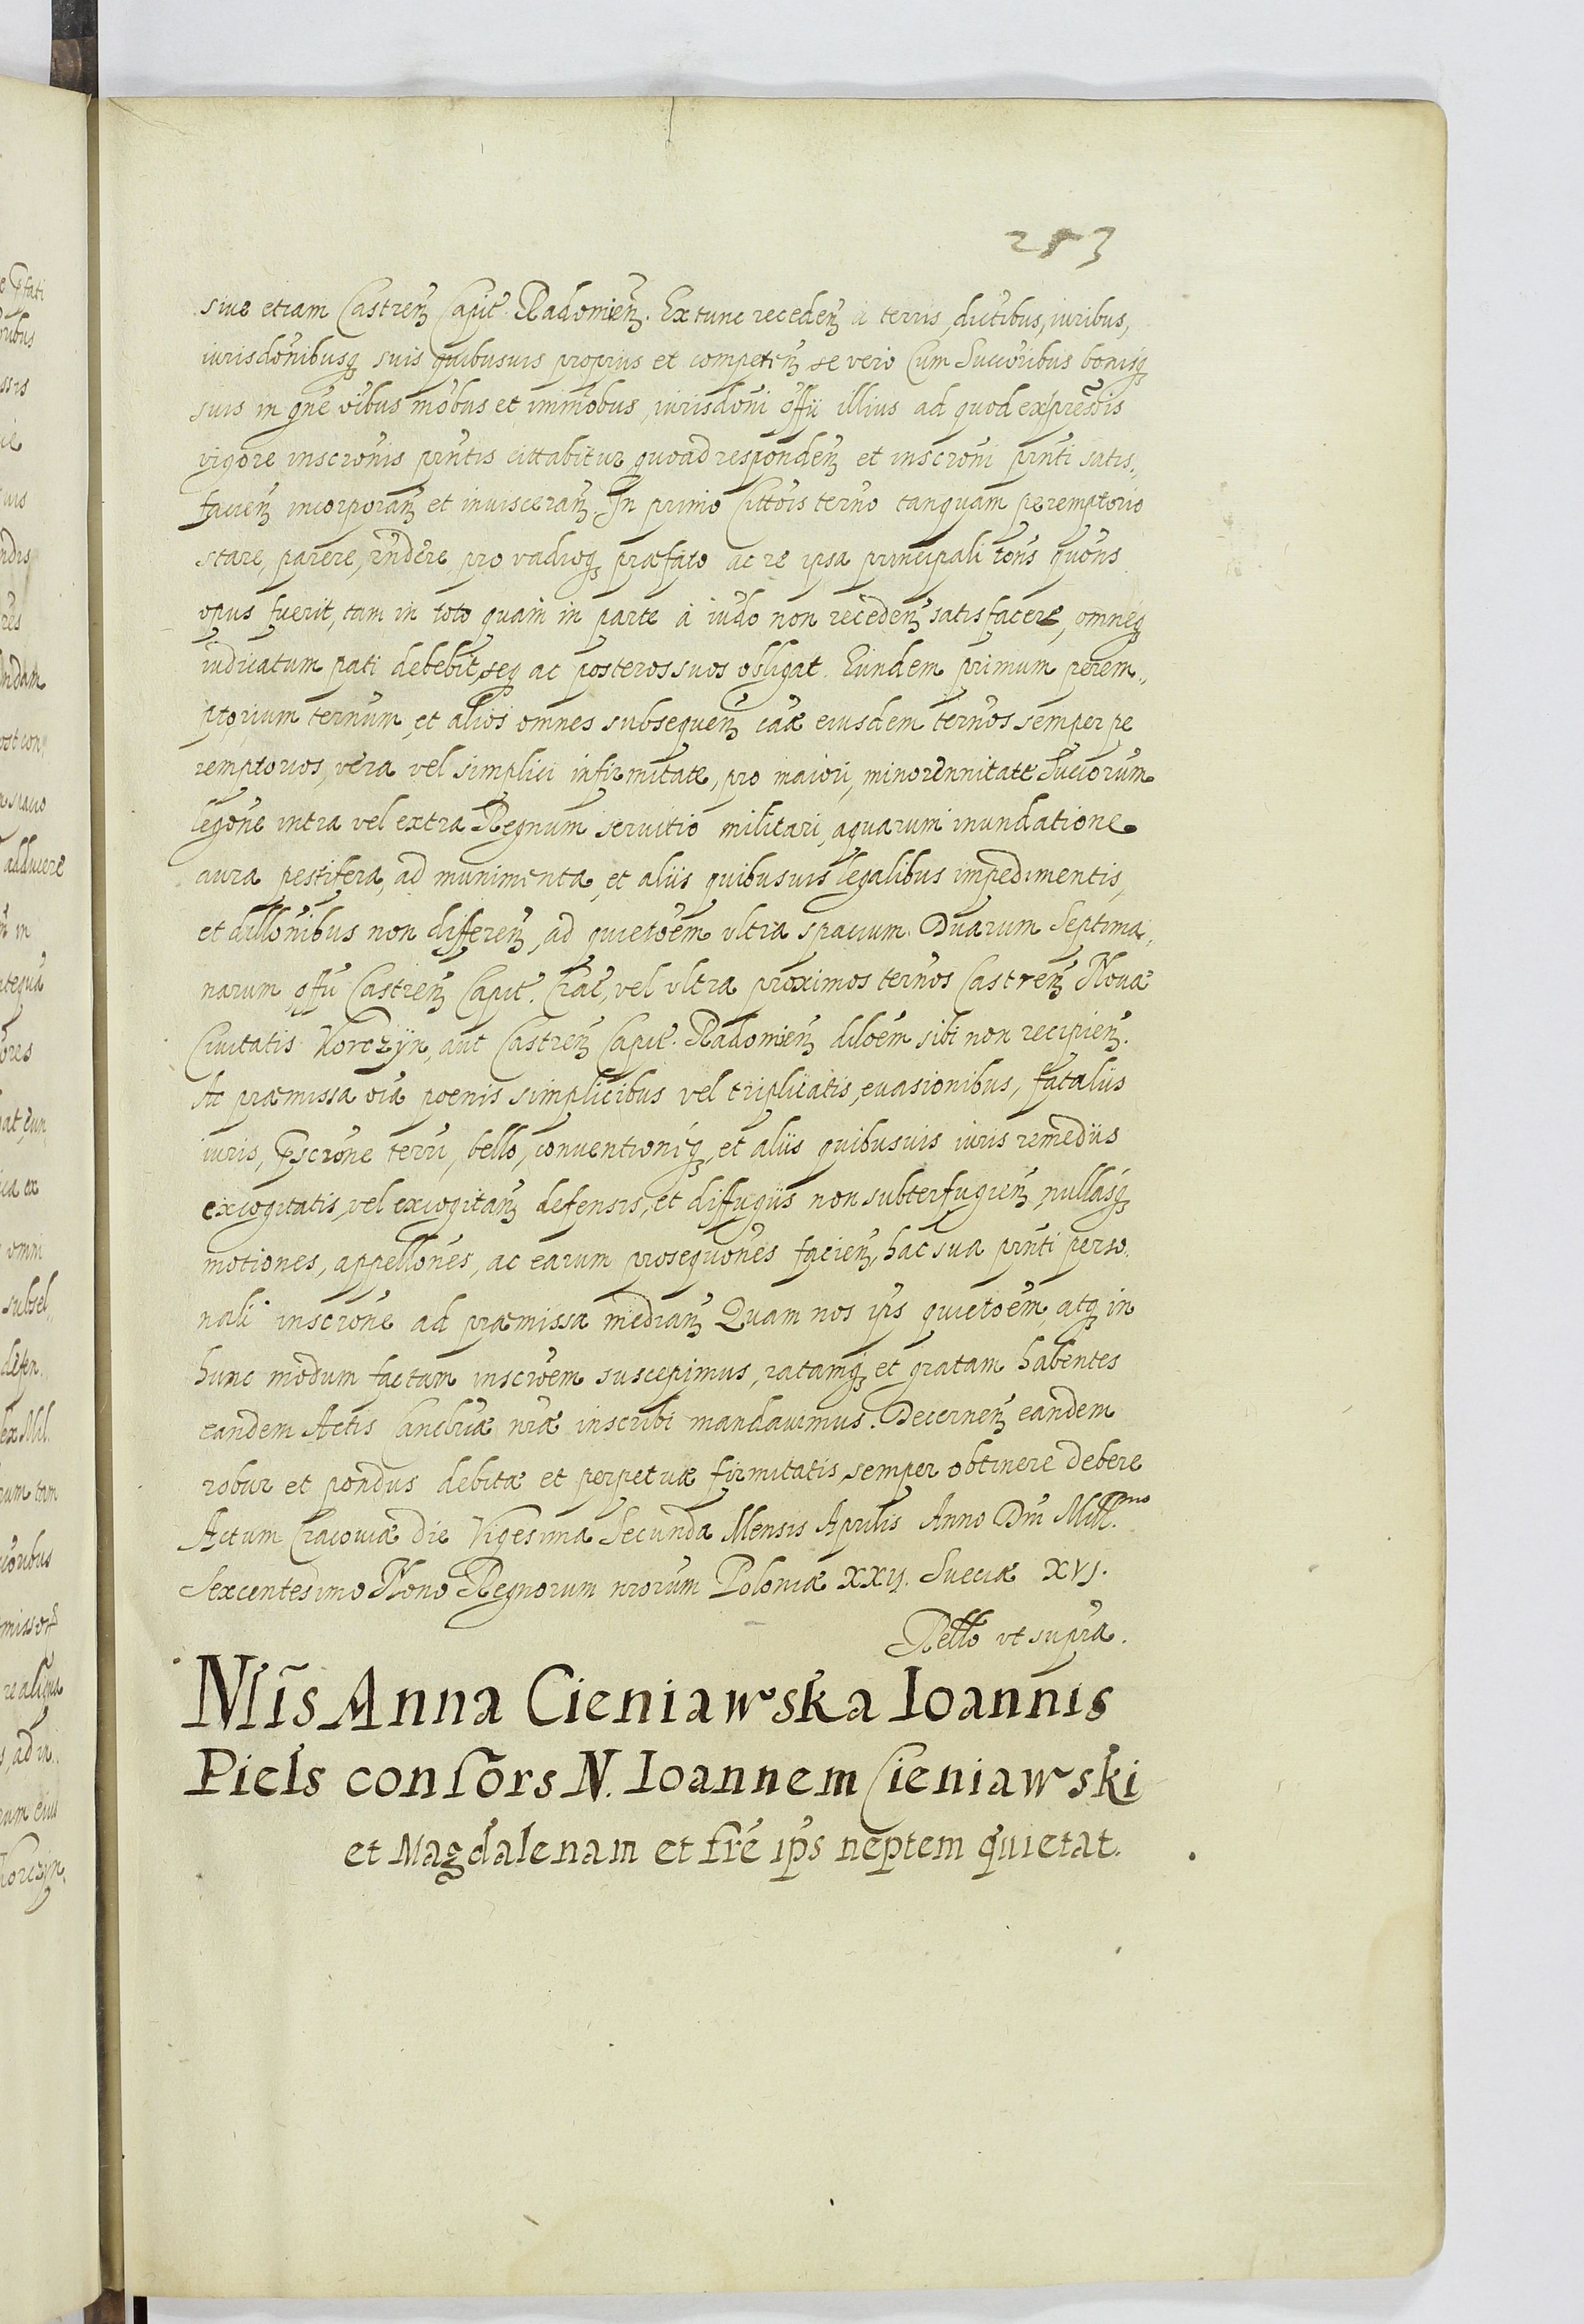 253
siue etiam Castreñ Capit. Radomieñ. Ex tunc recedeñ à terris, dictibus, iuribus,
iurisdõnibusq; suis quibusuis proprius et competeñ se vero Cum Succõribus bonisq;
suis in gñe õibus mõbus et immõbus, iurisdõni offii illius ad quod expressõis
vigore inscrõnis pñtis cittabitur quoad respondeñ et inscrõni pñti satis„
facieñ incorporañ et inuiscerañ. In primo Cittõis terño tanquam peremptorio
stare, parere, rñdere pro vadioq; præfato ac re ipsa principali tõns quõns
opus fuerit, tam in toto quam in parte à iudõ non recedeñ satisfacere, omneq;
iudicatum pati debebit, seq; ac posteros suos obligat. Eundem primum perem„
ptorium terñum, et alios omnes subsequeñ cãæ eiusdem terños semper pe
remptorios, vera vel simplici infirmitate, pro maiori, minorennitate Succorum
legõne intra vel extra Regnum seruitio militari, aquarum inundatione
aura pestifera, ad munimenta, et aliis quibusuis legalibus impedimentis,
et dillõnibus non differeñ, ad quietõem vltra spacium Duarum Septima„
narum offii Castreñ Capit. Crac, vel vltra proximos terños Castreñ Nouæ
Ciuitatis Korczÿn, aut Castreñ Capit. Radomieñ dilõem sibi non recipieñ.
Ac præmissa oĩa poenis simplicibus vel triplicatis, euasionibus, fataliis
iuris, pscrõne terrñ, bello, conuentioniq;, et aliis quibusuis iuris remediis
excogitatis, vel excogitañ defensis, et diffugiis non subterfugieñ, nullasq;
motiones, appellõnes, ac earum prosequõnes facieñ, hac sua pñti perso„
nali inscrõne ad præmissa mediañ Quam nos ips quietõem, atq; in
hunc modum factam inscrõem suscepimus, ratamq; et gratam habentes
eandem Actis Cancllriæ nræ inscribi mandauimus. Decerneñ eandem
robur et pondus debitæ et perpetuæ firmitatis, semper obtinere debere
Actum Cracouiæ die Vigesima Secunda Mensis Aprilis Anno Dñi Mill.mo
Sexcentesimo Nono Regnorum nrorum Poloniæ XXIJ. Sueciæ XVJ.
Rello vt supra.
Nlis Anna Cieniawska Ioannis
Piels consõrs N. Ioannem Cieniawski
et Magdalenam et frẽ ips neptem quietat.